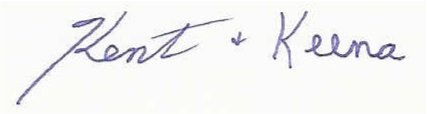 Kent + Keena